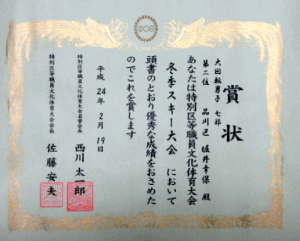 賞状
大回転男子 七部
第二位 品川区 坂井幸保 殿
あなたは特別区等職員文化体育大会
冬季スキー大会 において
頭書のとおり優秀な成績をおさめた
のでこれを賞します
平成24年2月19日
特別区等職員文化体育大会名誉会長
西川太一郎
特別区等職員文化体育大会会長
佐藤安夫